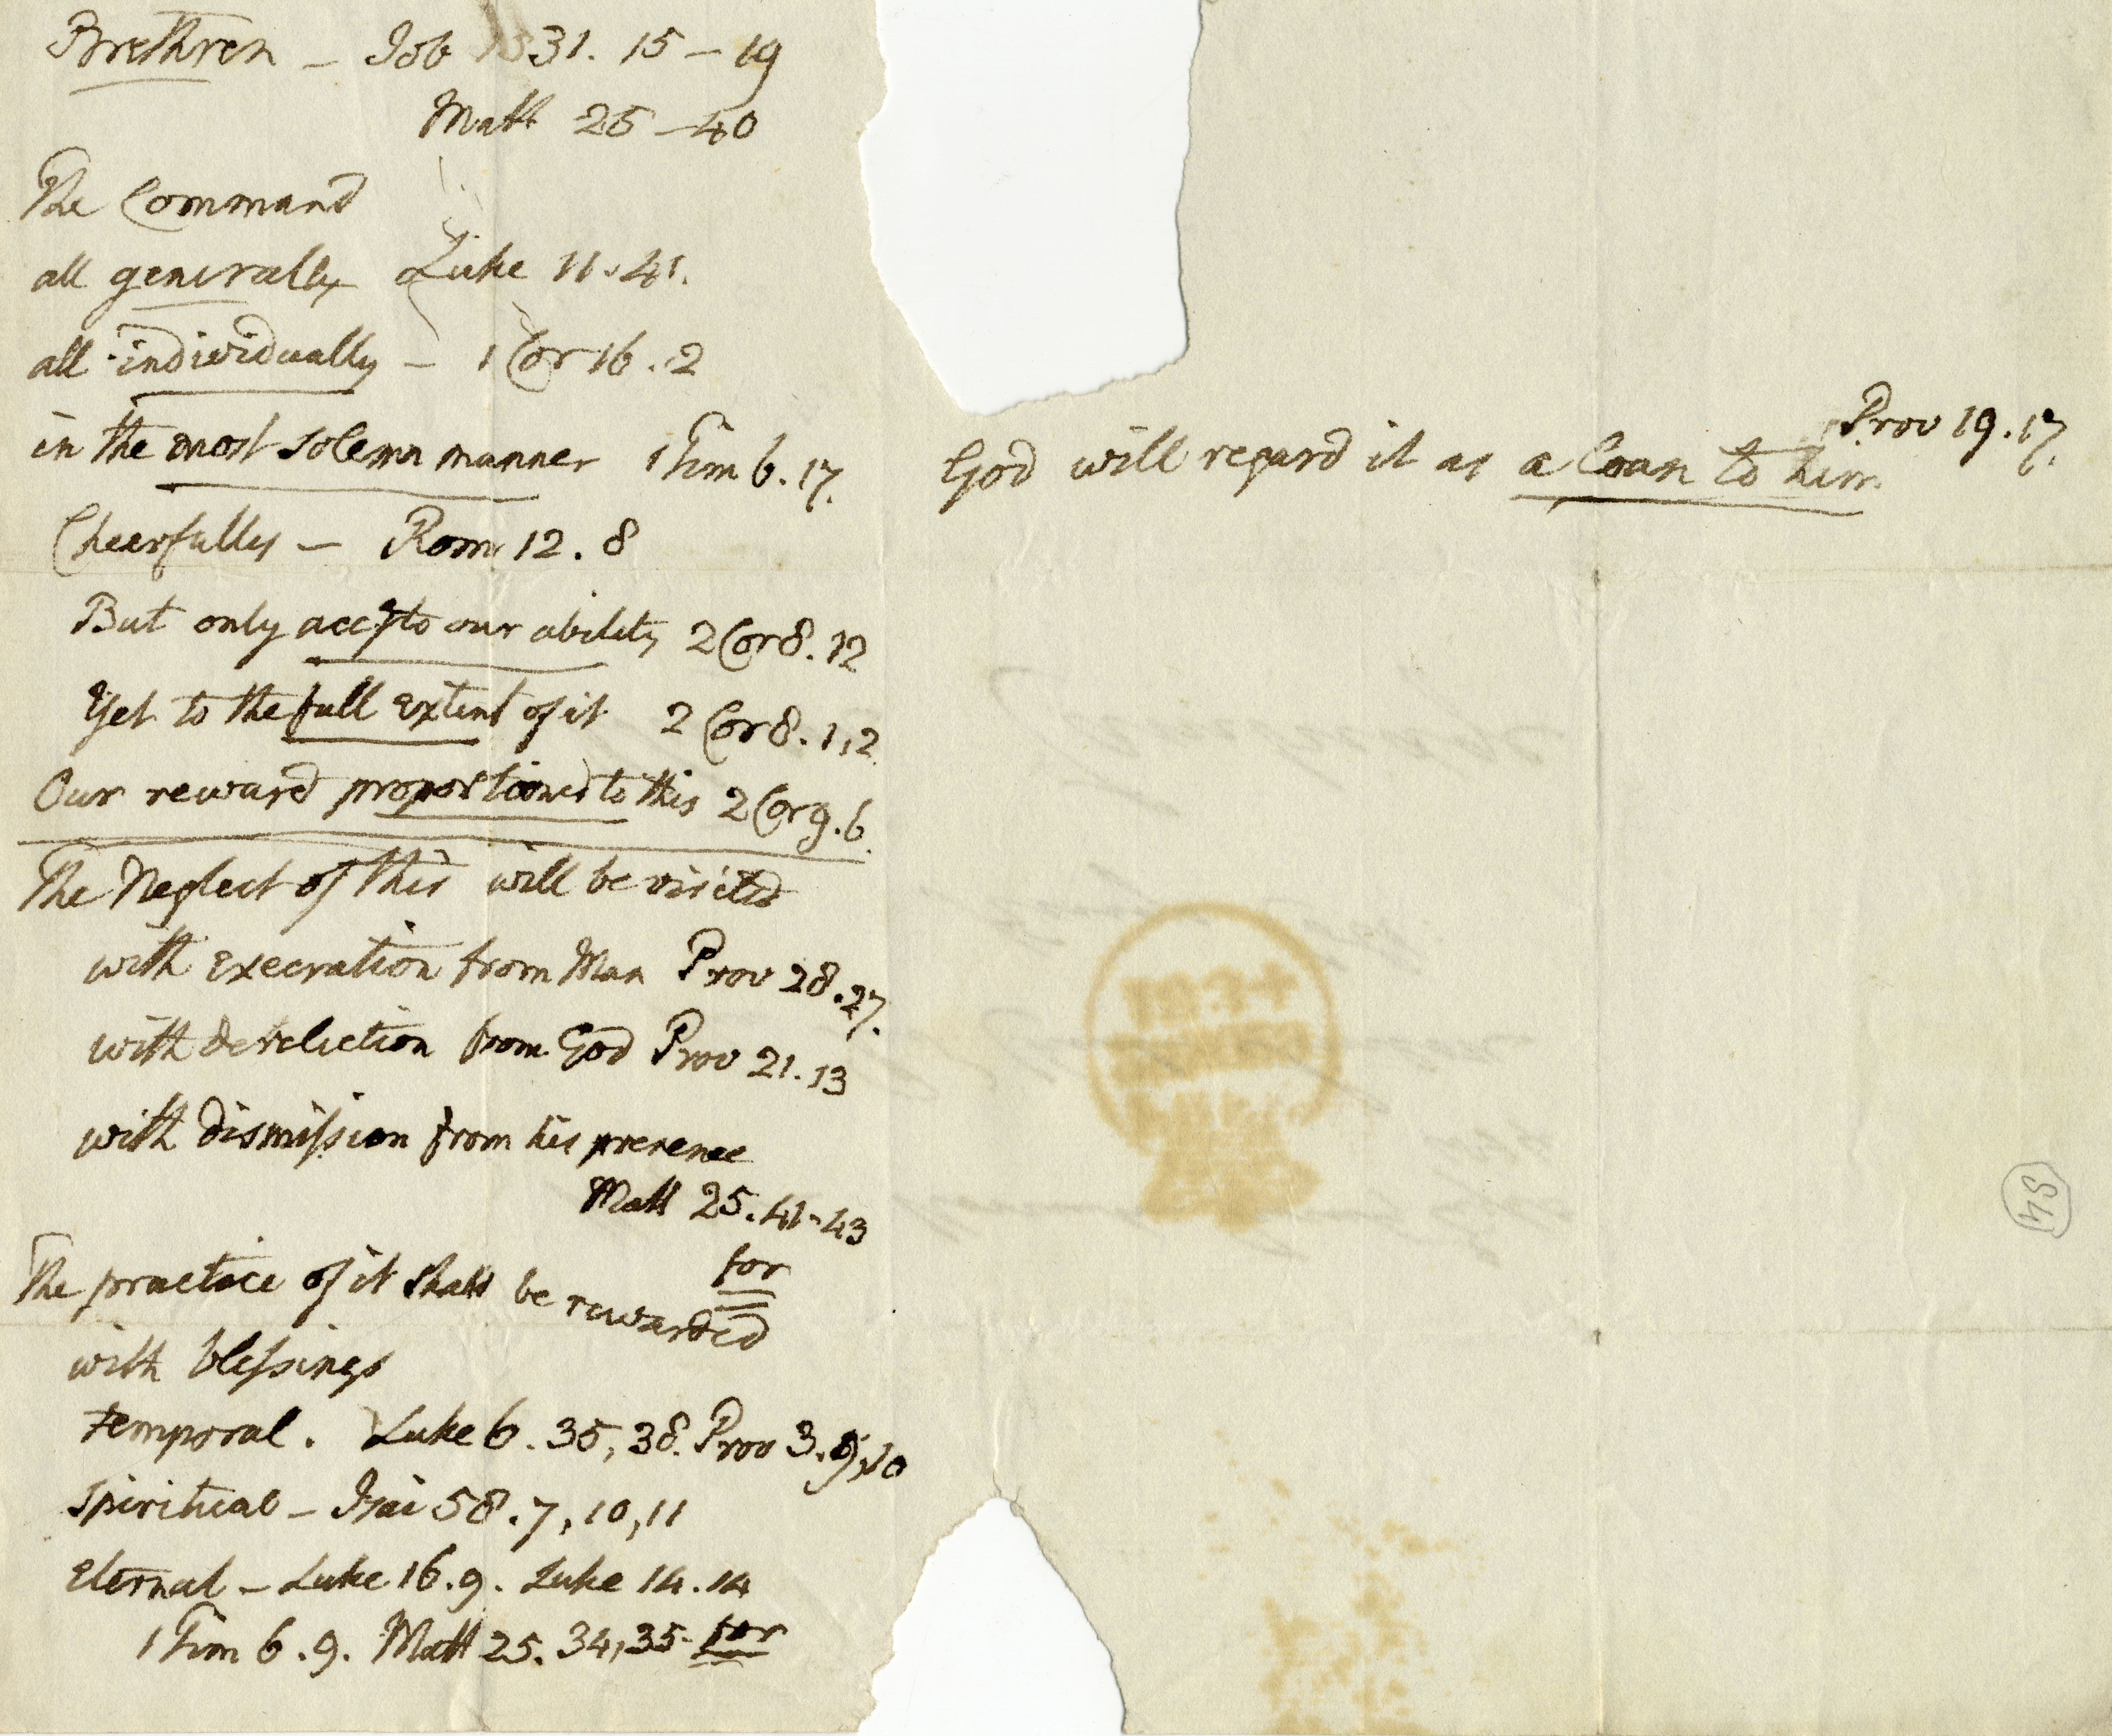 Brethren – Job 31. 15 – 19
Matt 25 – 40
The Command
all generally Luke 11. 41.
all individually – 1 Cor 16. 2
in the most solemn manner 1 Tim 6. 17.
Cheerfully – Rom 12. 8
But only accg to our ability 2 Cor 8. 12
Yet to the full extent of it 2 Cor 8. 1, 2.
Our reward proportioned to this 2 Cor 9. 6.
The Neglect of this will be visited
with execration from Man Prov 28. 27.
with dereliction from God Prov 21. 13
with dismission from his presence
Matt 25. 41-43
for
The practice of it shall be rewarded
with blessings
temporal. Luke 6. 35, 38. Prov 3. 9, 10
Spiritual – Isai 58. 7, 10, 11
Eternal – Luke 16. 9. Luke 14. 14
1 Tim 6. 9. Matt 25. 34, 35. for
Prov 19. 17.
God will regard it as a loan to him
54